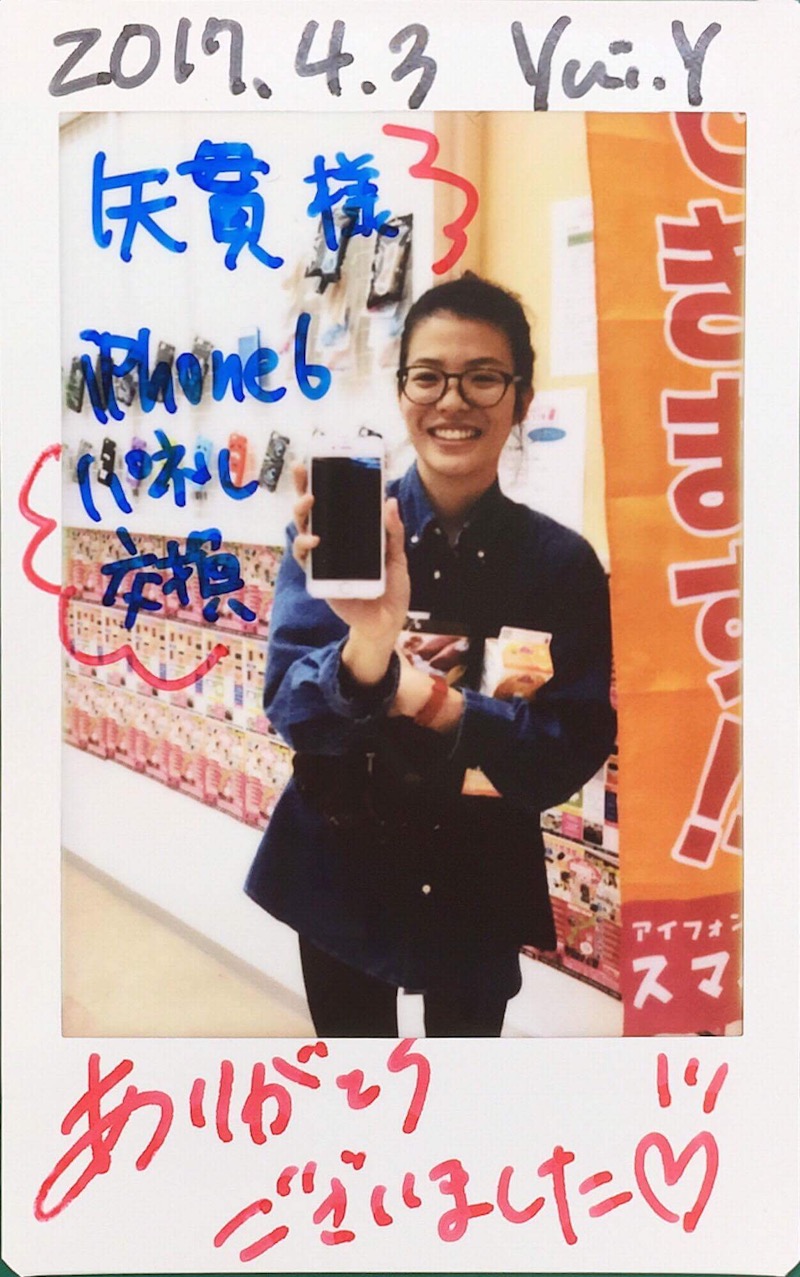 2017.4.3 Yui.Y
矢貫 様
iPhone6
パネル
交換
きます!!
アイフォン
スマ
ありがとう
ございました♡